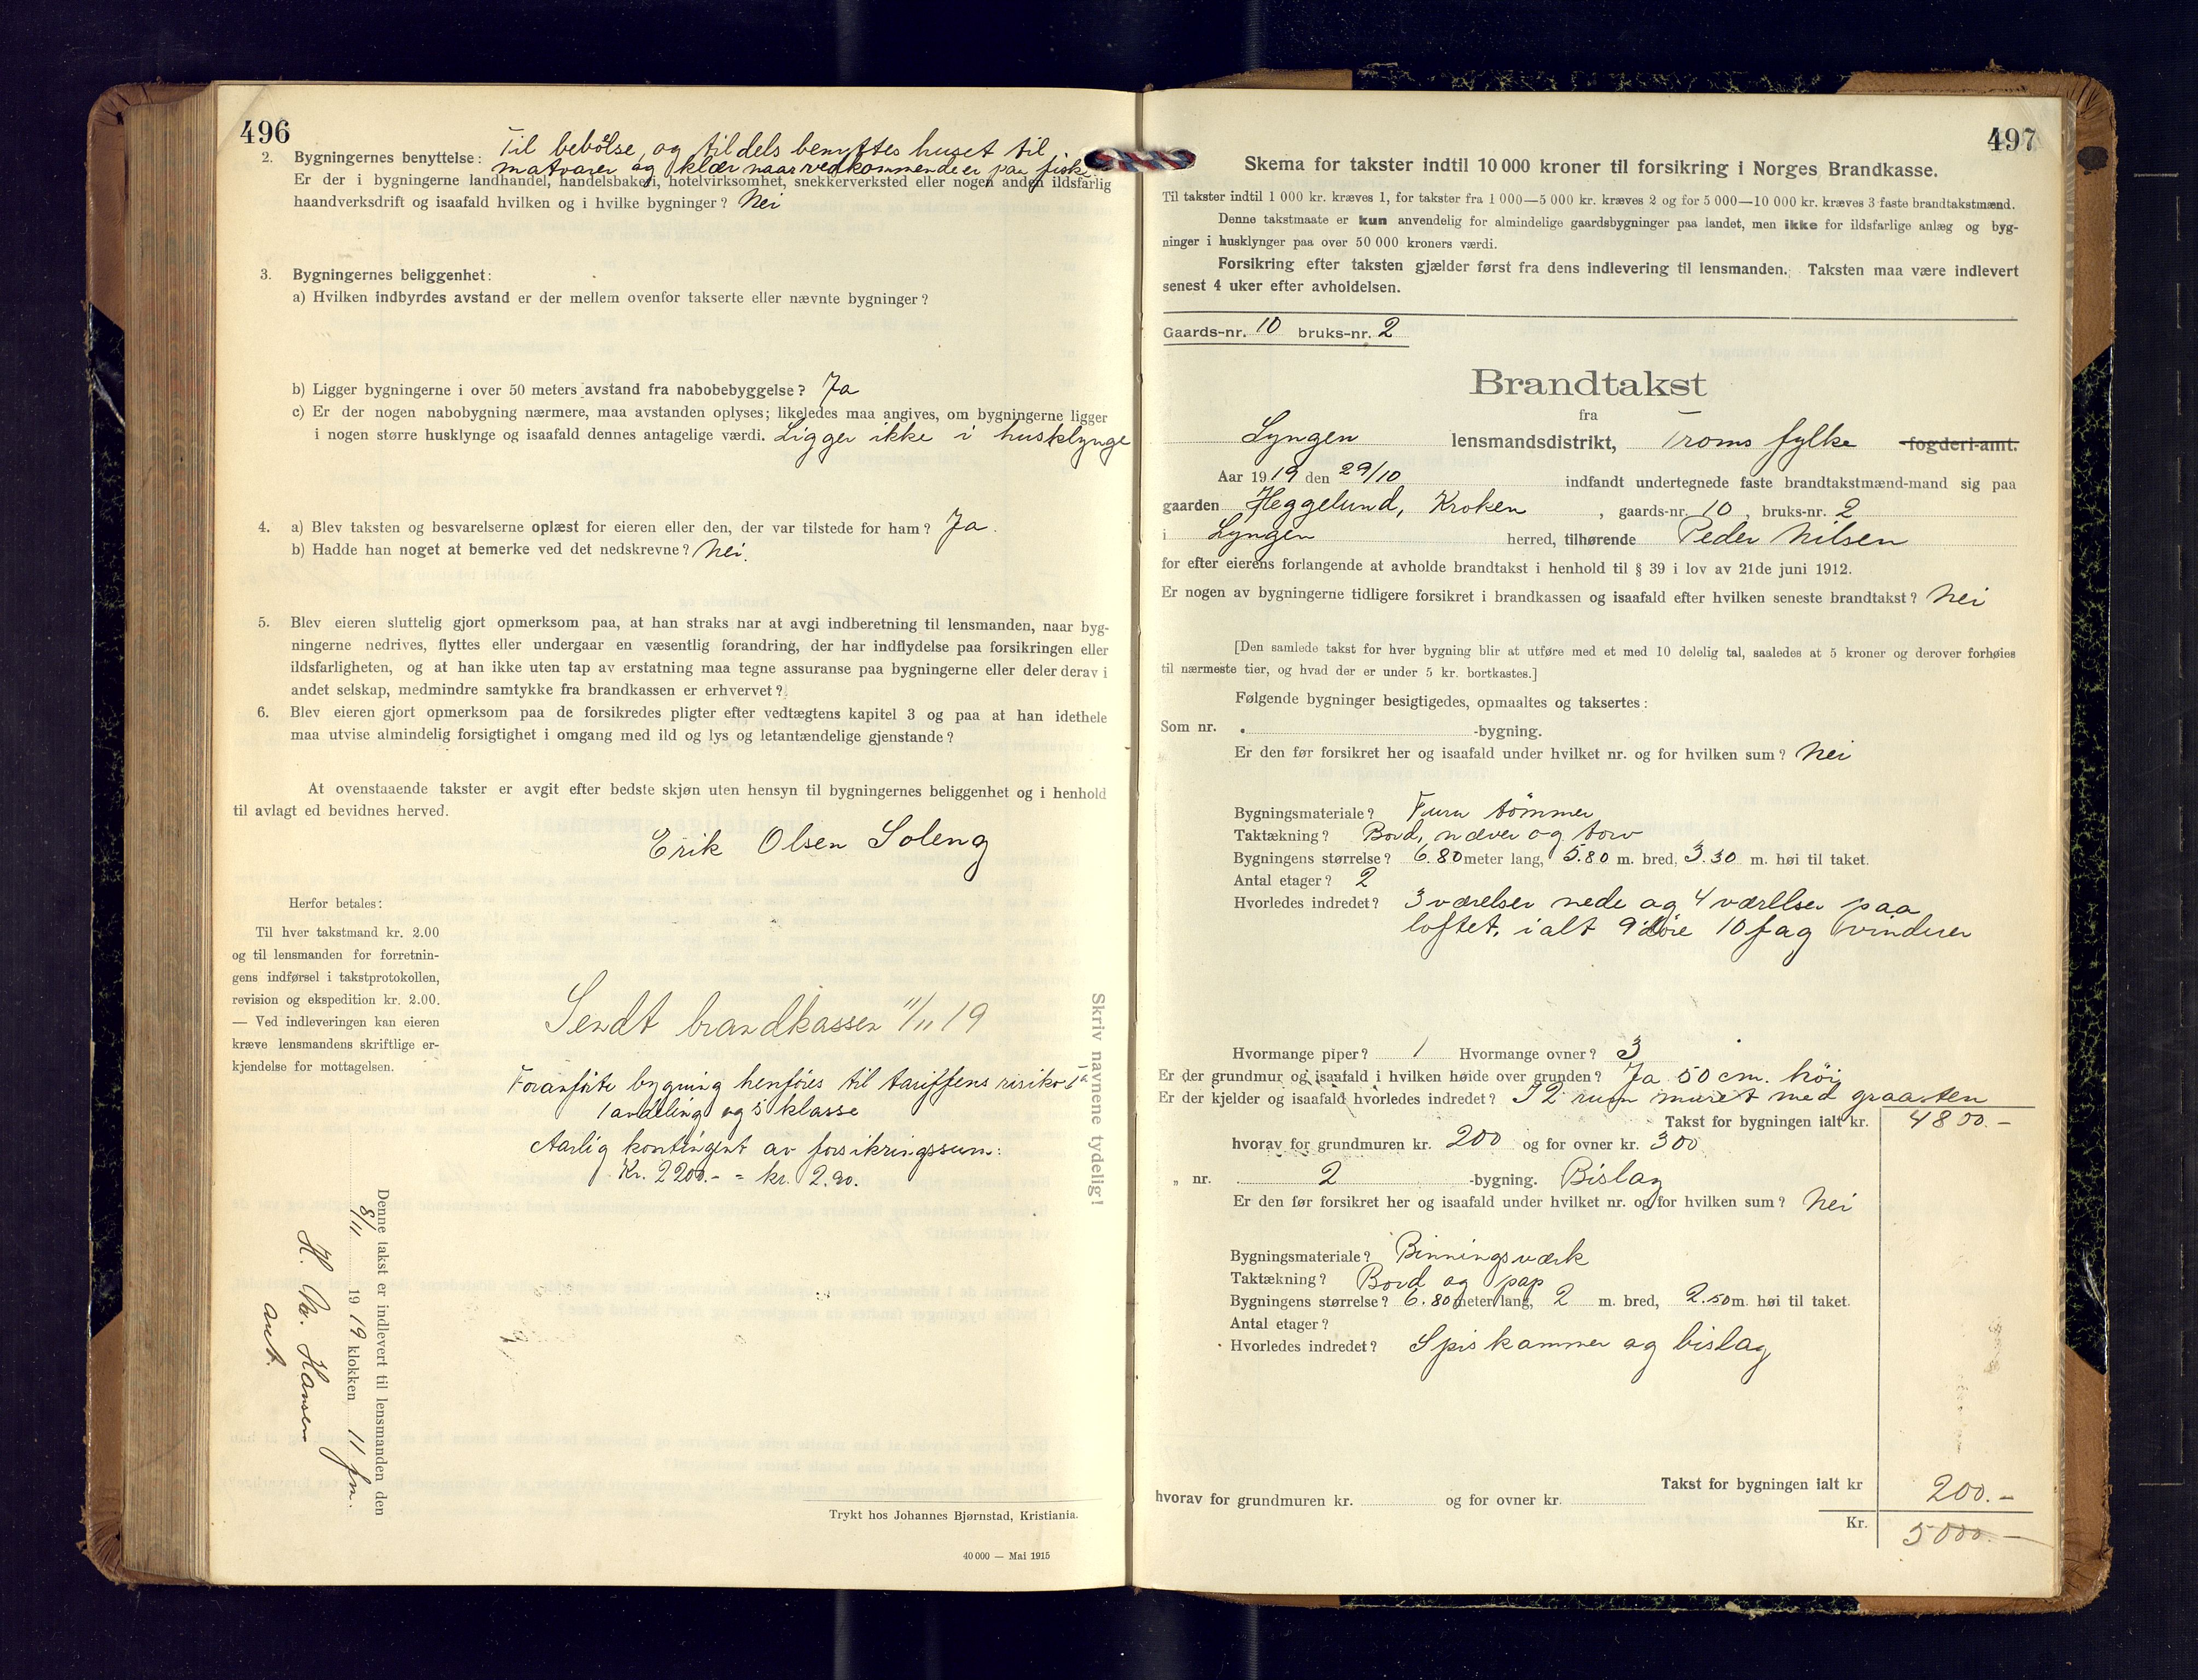 496
2. Bygningernes benyttelse: Til bebölse og tildels benyttes huset til
matvarer og klær naar vedkommende er paa fiske
Er der i bygningerne landhandel, handelsbakeri, hotelvirksomhet, snekkerverksted eller nogen anden ildsfarlig
haandverksdrift og isaafald hvilken og i hvilke bygninger? Nei
3. Bygningernes beliggenhet:
a) Hvilken indbyrdes avstand er der mellem ovenfor takserte eller nævnte bygninger?
b) Ligger bygningerne i over 50 meters avstand fra nabobebyggelse? Ja
c) Er der nogen nabobygning nærmere, maa avstanden oplyses; likeledes maa angives, om bygningerne ligger
i nogen større husklynge og isaafald dennes antagelige værdi. Ligger ikke i husklynge
4. a) Blev taksten og besvarelserne oplæst for eieren eller den, der var tilstede for ham? Ja.
b) Hadde han noget at bemerke ved det nedskrevne? Nei.
5. Blev eieren sluttelig gjort opmerksom paa, at han straks har at avgi indberetning til lensmanden, naar byg-
ningerne nedrives, flyttes eller undergaar en væsentlig forandring, der har indflydelse paa forsikringen eller
ildsfarligheten, og at han ikke uten tap av erstatning maa tegne assuranse paa bygningerne eller deler derav i
andet selskap, medmindre samtykke fra brandkassen er erhvervet?
6. Blev eieren gjort opmerksom paa de forsikredes pligter efter vedtægtens kapitel 3 og paa at han idethele
maa utvise almindelig forsigtighet i omgang med ild og lys og letantændelige gjenstande?
At ovenstaaende takster er avgit efter bedste skjøn uten hensyn til bygningernes beliggenhet og i henhold
til avlagt ed bevidnes herved.
Erik Olsen Soleng
Herfor betales:
Til hver takstmand kr. 2.00
og til lensmanden for forretnin-
gens indførsel i takstprotokollen,
revision og ekspedition kr. 2.00.
— Ved indleveringen kan eieren
kræve lensmandens skriftlige er-
kjendelse for mottagelsen.
Sendt brandkassen 11/11 19
Foranförte bygning henföres til tariffens risiko 1a
1 avdeling og 5 klasse
Aarlig kontingent av forsikringssum:
Kr. 2200.- = kr. 2.90.
Skriv navnene tydelig!
Denne takst er indlevert til lensmanden den
8/11 1919 klokken 11 fm.
H. Hansen
Trykt hos Johannes Bjørnstad, Kristiania.
40 000 — Mai 1915
497
Skema for takster indtil 10 000 kroner til forsikring i Norges Brandkasse.
Til takster indtil 1 000 kr. kræves 1, for takster fra 1 000—5 000 kr. kræves 2 og for 5 000—10 000 kr. kræves 3 faste brandtakstmænd.
Denne takstmaate er kun anvendelig for almindelige gaardsbygninger paa landet, men ikke for ildsfarlige anlæg og byg-
ninger i husklynger paa over 50 000 kroners værdi.
Forsikring efter taksten gjælder først fra dens indlevering til lensmanden. Taksten maa være indlevert
senest 4 uker efter avholdelsen.
Gaards-nr. 10 bruks-nr. 2
Brandtakst
fra
Lyngen lensmandsdistrikt, Troms fylke fogderi-amt.
Aar 1919 den 29/10 indfandt undertegnede faste brandtakstmænd-mand sig paa
gaarden Heggelund, Kroken, gaards-nr. 10, bruks-nr. 2
i Lyngen herred, tilhørende Peder Nilsen
for efter eierens forlangende at avholde brandtakst i henhold til § 39 i lov av 21de juni 1912.
Er nogen av bygningerne tidligere forsikret i brandkassen og isaafald efter hvilken seneste brandtakst? Nei
[Den samlede takst for hver bygning blir at utføre med et med 10 delelig tal, saaledes at 5 kroner og derover forhøies
til nærmeste tier, og hvad der er under 5 kr. bortkastes.]
Følgende bygninger besigtigedes, opmaaltes og taksertes:
Som nr. -bygning.
Er den før forsikret her og isaafald under hvilket nr. og for hvilken sum? Nei
Bygningsmateriale? Furu tömmer
Taktækning? Bord, næver og torv
Bygningens størrelse? 6.80 meter lang, 5.80 m. bred, 3.30 m. høi til taket.
Antal etager? 2
Hvorledes indredet? 3 værelser nede og 4 værelser paa
loftet, ialt 9 döre 10 fag vinduer
Hvormange piper? 1 Hvormange ovner? 3
Er der grundmur og isaafald i hvilken høide over grunden? Ja 50 cm. höi
Er der kjelder og isaafald hvorledes indredet? I 2 rum muret med graasten
Takst for bygningen ialt kr. 4800.-
hvorav for grundmuren kr. 200 og for ovner kr. 300
„ nr. 2 -bygning. Bislag
Er den før forsikret her og isaafald under hvilket nr. og for hvilken sum? Nei
Bygningsmateriale? Binningsværk
Taktækning? Bord og pap
Bygningens størrelse? 6.80 meter lang, 2 m. bred, 2.50 m. høi til taket.
Antal etager?
Hvorledes indredet? Spiskammer og bislag
Takst for bygningen ialt kr 200.-
hvorav for grundmuren kr. og for ovner kr.
Kr. 5000.-